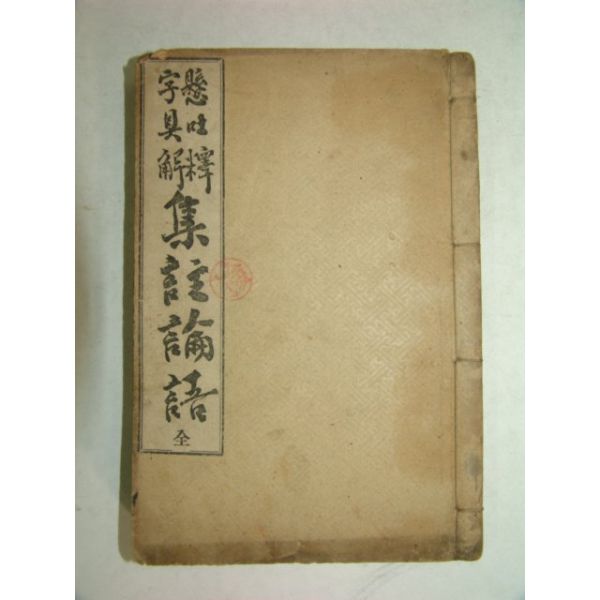 懸吐釋
字具解
集註論語
全